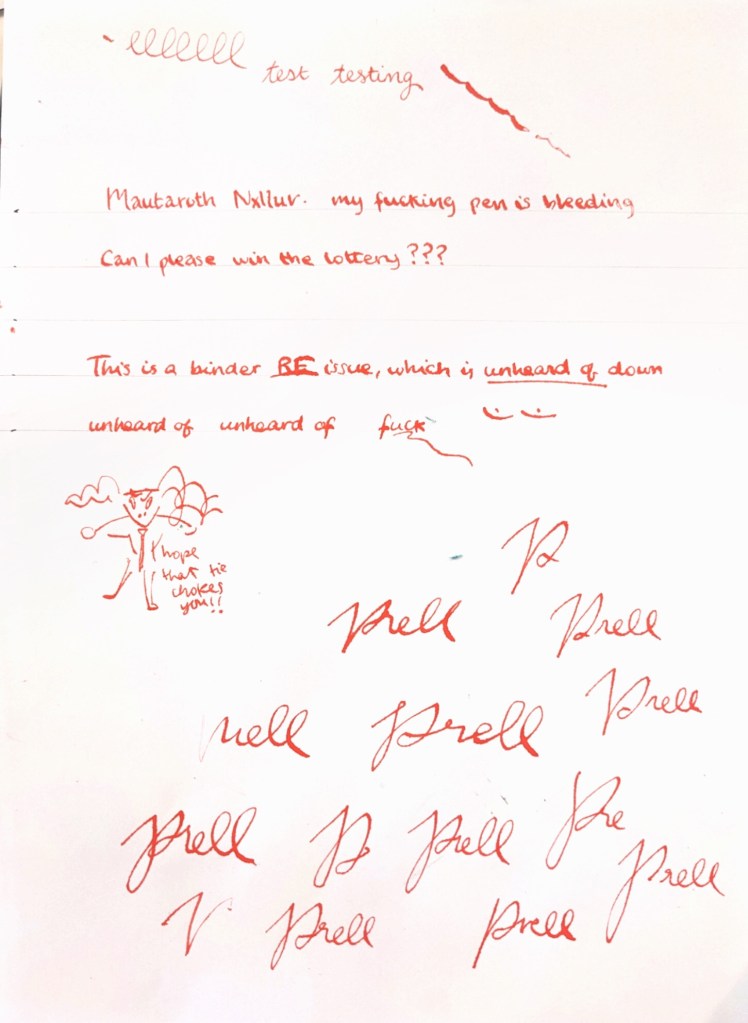 ellllll test testing
Mautaruth Nxllur. my fucking pen is bleeding
Can I please win the lottery???
This is a binder BE issue, which is unheard of down
unheard of unheard of fuck
I hope
that tie
chokes
you!!
P
Prell Prell
Prell
rell Prell
Prell P Prell Pre
Prell
P Prell Prell